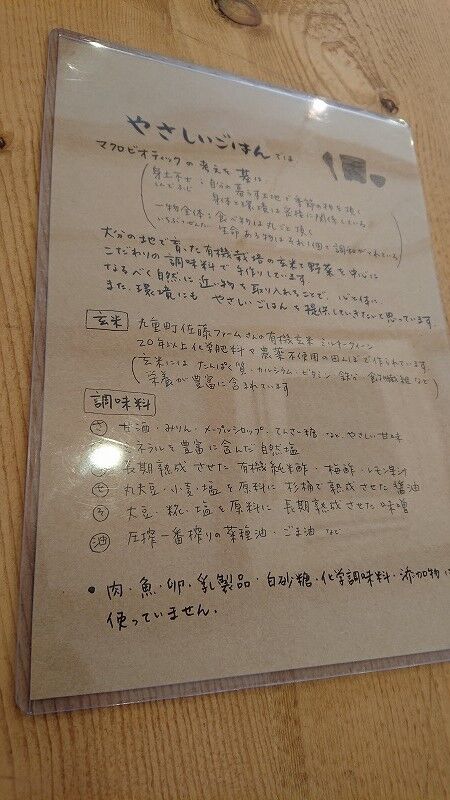 やさしいごはん では
マクロビオティックの考えを基に
身土不二：自分の暮らす土地で季節の物を頂く
しんどふじ 身体と環境は密接に関係している
一物全体：食べ物は丸ごと頂く
いちぶつぜんたい 生命ある物はそれ1個で調和がとれている
大分の地で育った有機栽培の玄米と野菜を中心に
こだわりの調味料で手作りしています。
なるべく自然に近い物を取り入れることで、心と体に
また、環境にも やさしいごはんを提供していきたいと思っています。
玄米 九重町佐藤ファームさんの有機玄米 ミルキークイーン
20年以上化学肥料や農薬不使用の田んぼで作られています。
玄米には たんぱく質・カルシウム・ビタミン・鉄分・食物繊維など
栄養が豊富に含まれています
調味料
さ 甘酒・みりん・メープルシロップ・てんさい糖 など やさしい甘味
ミネラルを豊富に含んだ自然塩
長期熟成させた 有機純米酢・梅酢・レモン果汁
せ 丸大豆・小麦・塩を原料に 杉桶で熟成させた醤油
そ 大豆・糀・塩を原料に 長期熟成させた味噌
油 圧搾一番搾りの菜種油・ごま油 など
• 肉・魚・卵・乳製品・白砂糖・化学調味料・添加物は
使っていません。